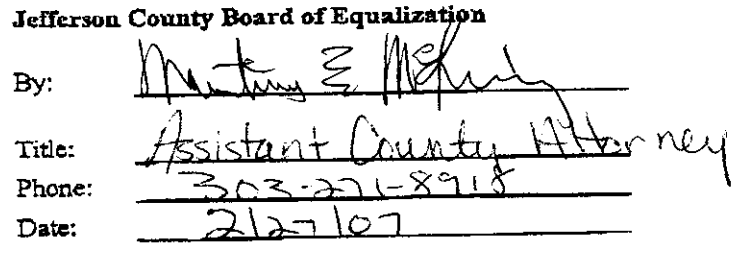 Jefferson County Board of Equalization
By:
Title: Assistant County Attorney
Phone: 303-271-8918
Date: 2/27/07